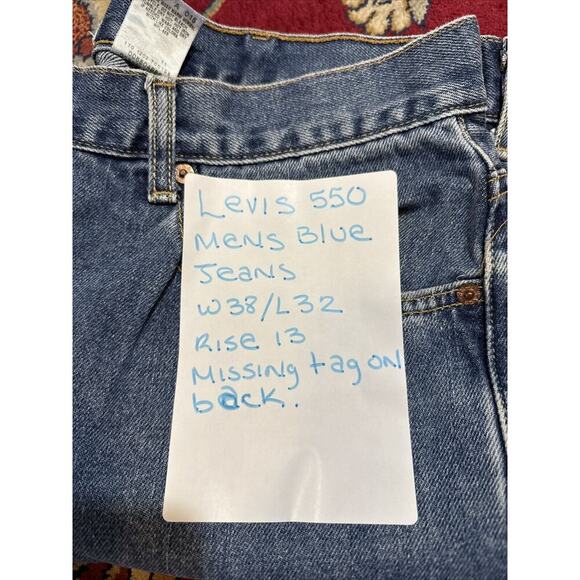 Levis 550
Mens Blue
Jeans
W38/L32
Rise 13
Missing tag on
back.